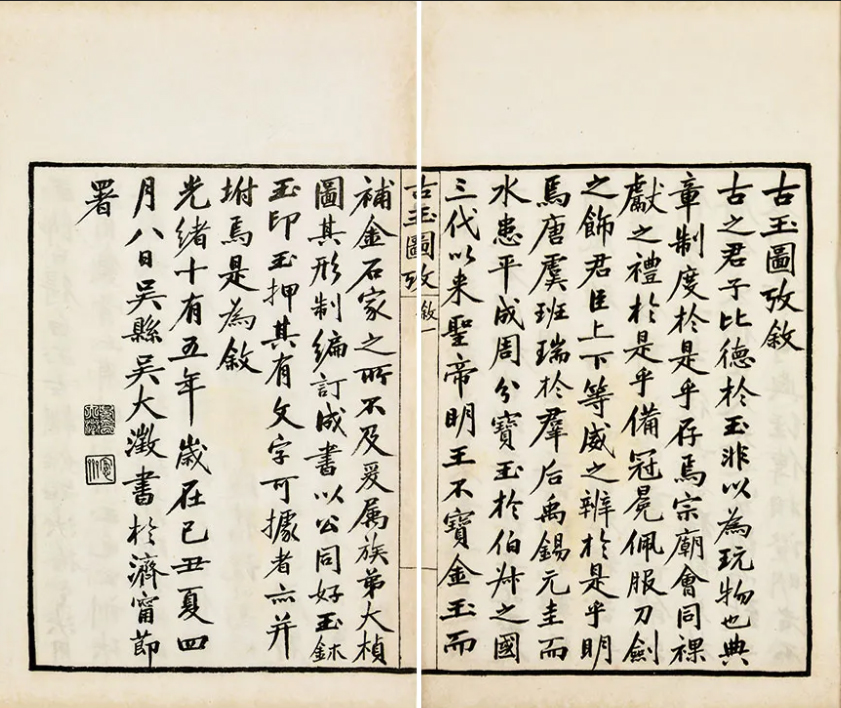 古玉圖攷敘
古之君子比德於玉非以為玩物也典
章制度於是乎存焉宗廟會同祼
獻之禮於是乎備冠冕佩服刀劍
之飾君臣上下等威之辨於是乎明
焉唐虞班瑞於羣后禹錫元圭而
水患平成周分寶玉於伯叔之國
三代以來聖帝明王不寶金玉而
古玉圖攷 敘 一
補金石家之所不及爰属族弟大楨
圖其形制編訂成書以公同好玉鉥
玉印玉押其有文字可據者亦并
坿焉是為敘
光緒十有五年歲在己丑夏四
月八日吳縣吳大澂書於濟甯節
署